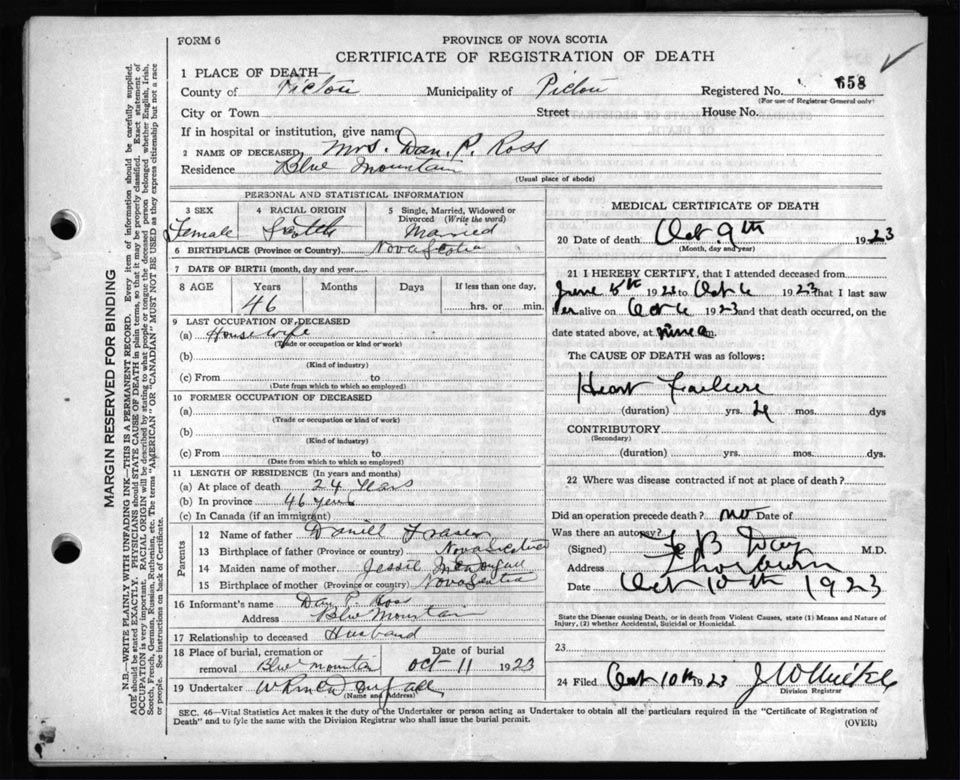 FORM 6
PROVINCE OF NOVA SCOTIA
CERTIFICATE OF REGISTRATION OF DEATH
1 PLACE OF DEATH—
County of Pictou Municipality of Pictou Registered No. 658
(For use of Registrar-General only)
City or Town Street House No.
If in hospital or institution, give name
2 NAME OF DECEASED Mrs. Dan. P. Ross
Residence Blue Mountain
(Usual place of abode)
PERSONAL AND STATISTICAL INFORMATION
3 SEX 4 RACIAL ORIGIN 5 Single, Married, Widowed or Divorced (Write the word)
Female Scotch Married
6 BIRTHPLACE (Province or Country) Nova Scotia
7 DATE OF BIRTH (month, day and year)
8 AGE Years Months Days If less than one day,
46 hrs. or min.
9 LAST OCCUPATION OF DECEASED
(a) Housewife
(Trade or occupation or kind of work)
(b)
(Kind of industry)
(c) From to
(Date from which to which so employed)
10 FORMER OCCUPATION OF DECEASED
(a)
(Trade or occupation or kind of work)
(b)
(Kind of industry)
(c) From to
(Date from which to which so employed)
11 LENGTH OF RESIDENCE (In years and months)
(a) At place of death 24 Years
(b) In province 46 years
(c) In Canada (if an immigrant)
Parents
12 Name of father Daniel Fraser
13 Birthplace of father (Province or country) Nova Scotia
14 Maiden name of mother Jessie
15 Birthplace of mother (Province or country) Nova Scotia
16 Informant's name Dan P. Ross
Address Blue Mountain
17 Relationship to deceased Husband
18 Place of burial, cremation or removal Blue Mountain Date of burial Oct 11 1923
19 Undertaker
(Name and Address)
MEDICAL CERTIFICATE OF DEATH
20 Date of death Oct. 9th 1923
(Month, day and year)
21 I HEREBY CERTIFY, that I attended deceased from
June 5th 1923 to Oct 6 1923 that I last saw
her alive on Oct 6 1923 and that death occurred, on the
date stated above, at m.
The CAUSE OF DEATH was as follows:
Heart Failure
(duration) yrs. mos. dys
CONTRIBUTORY
(Secondary)
(duration) yrs. mos. dys
22 Where was disease contracted if not at place of death?
Did an operation precede death? no Date of
Was there an autopsy?
(Signed) B Day M.D.
Address Thorburn
Date Oct 10th 1923
State the Disease causing Death, or in death from Violent Causes, state (1) Means and Nature of Injury, (2) whether Accidental, Suicidal or Homicidal.
23
24 Filed Oct 10th 1923
Division Registrar
SEC. 46—Vital Statistics Act makes it the duty of the Undertaker or person acting as Undertaker to obtain all the particulars required in the "Certificate of Registration of
Death" and to fyle the same with the Division Registrar who shall issue the burial permit.
(OVER)
MARGIN RESERVED FOR BINDING
N.B.—WRITE PLAINLY WITH UNFADING INK—THIS IS A PERMANENT RECORD. Every item of information should be carefully supplied.
AGE should be stated EXACTLY. PHYSICIANS should STATE CAUSE OF DEATH in plain terms, so that it may be properly classified. Exact statement of
OCCUPATION is very important. RACIAL ORIGIN will be described by stating to what people or tongue the deceased person belonged whether English, Irish,
Scotch, French, German, Russian, Ruthenian, etc. The terms "AMERICAN" OR "CANADIAN" MUST NOT BE USED as they express citizenship but not a race
or people. See instructions on back of Certificate.